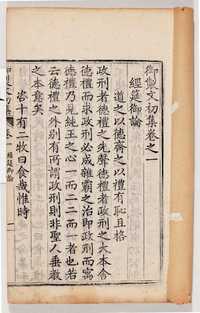 御製文初集卷之一
經筵御論
道之以德齊之以禮有恥且格
政刑者德禮之先聲德禮者政刑之大本舍
德禮而求政刑必成雜霸之治即政刑而寓
德禮乃見純王之心一而二二而一者也若
云德禮之外別有所謂政刑則非聖人垂教
之本意矣
咨十有二牧曰食哉惟時
御製文初集 卷一 經筵御論